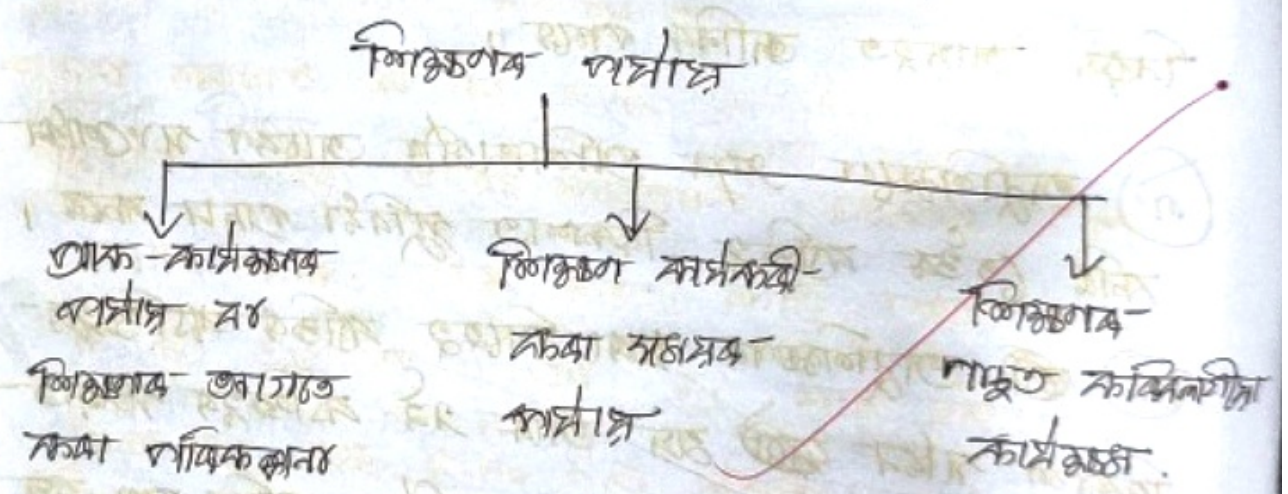 শিক্ষণৰ পৰ্যায়
প্ৰাক-কাৰ্যক্ষমৰ
পৰ্যায় বা
শিক্ষণৰ আগতে
কৰা পৰিকল্পনা
শিক্ষণ কাৰ্যকৰী
কৰা সময়ৰ
পৰ্যায়
শিক্ষণৰ
পাছত কৰিবলগীয়া
কাৰ্যক্ষম.